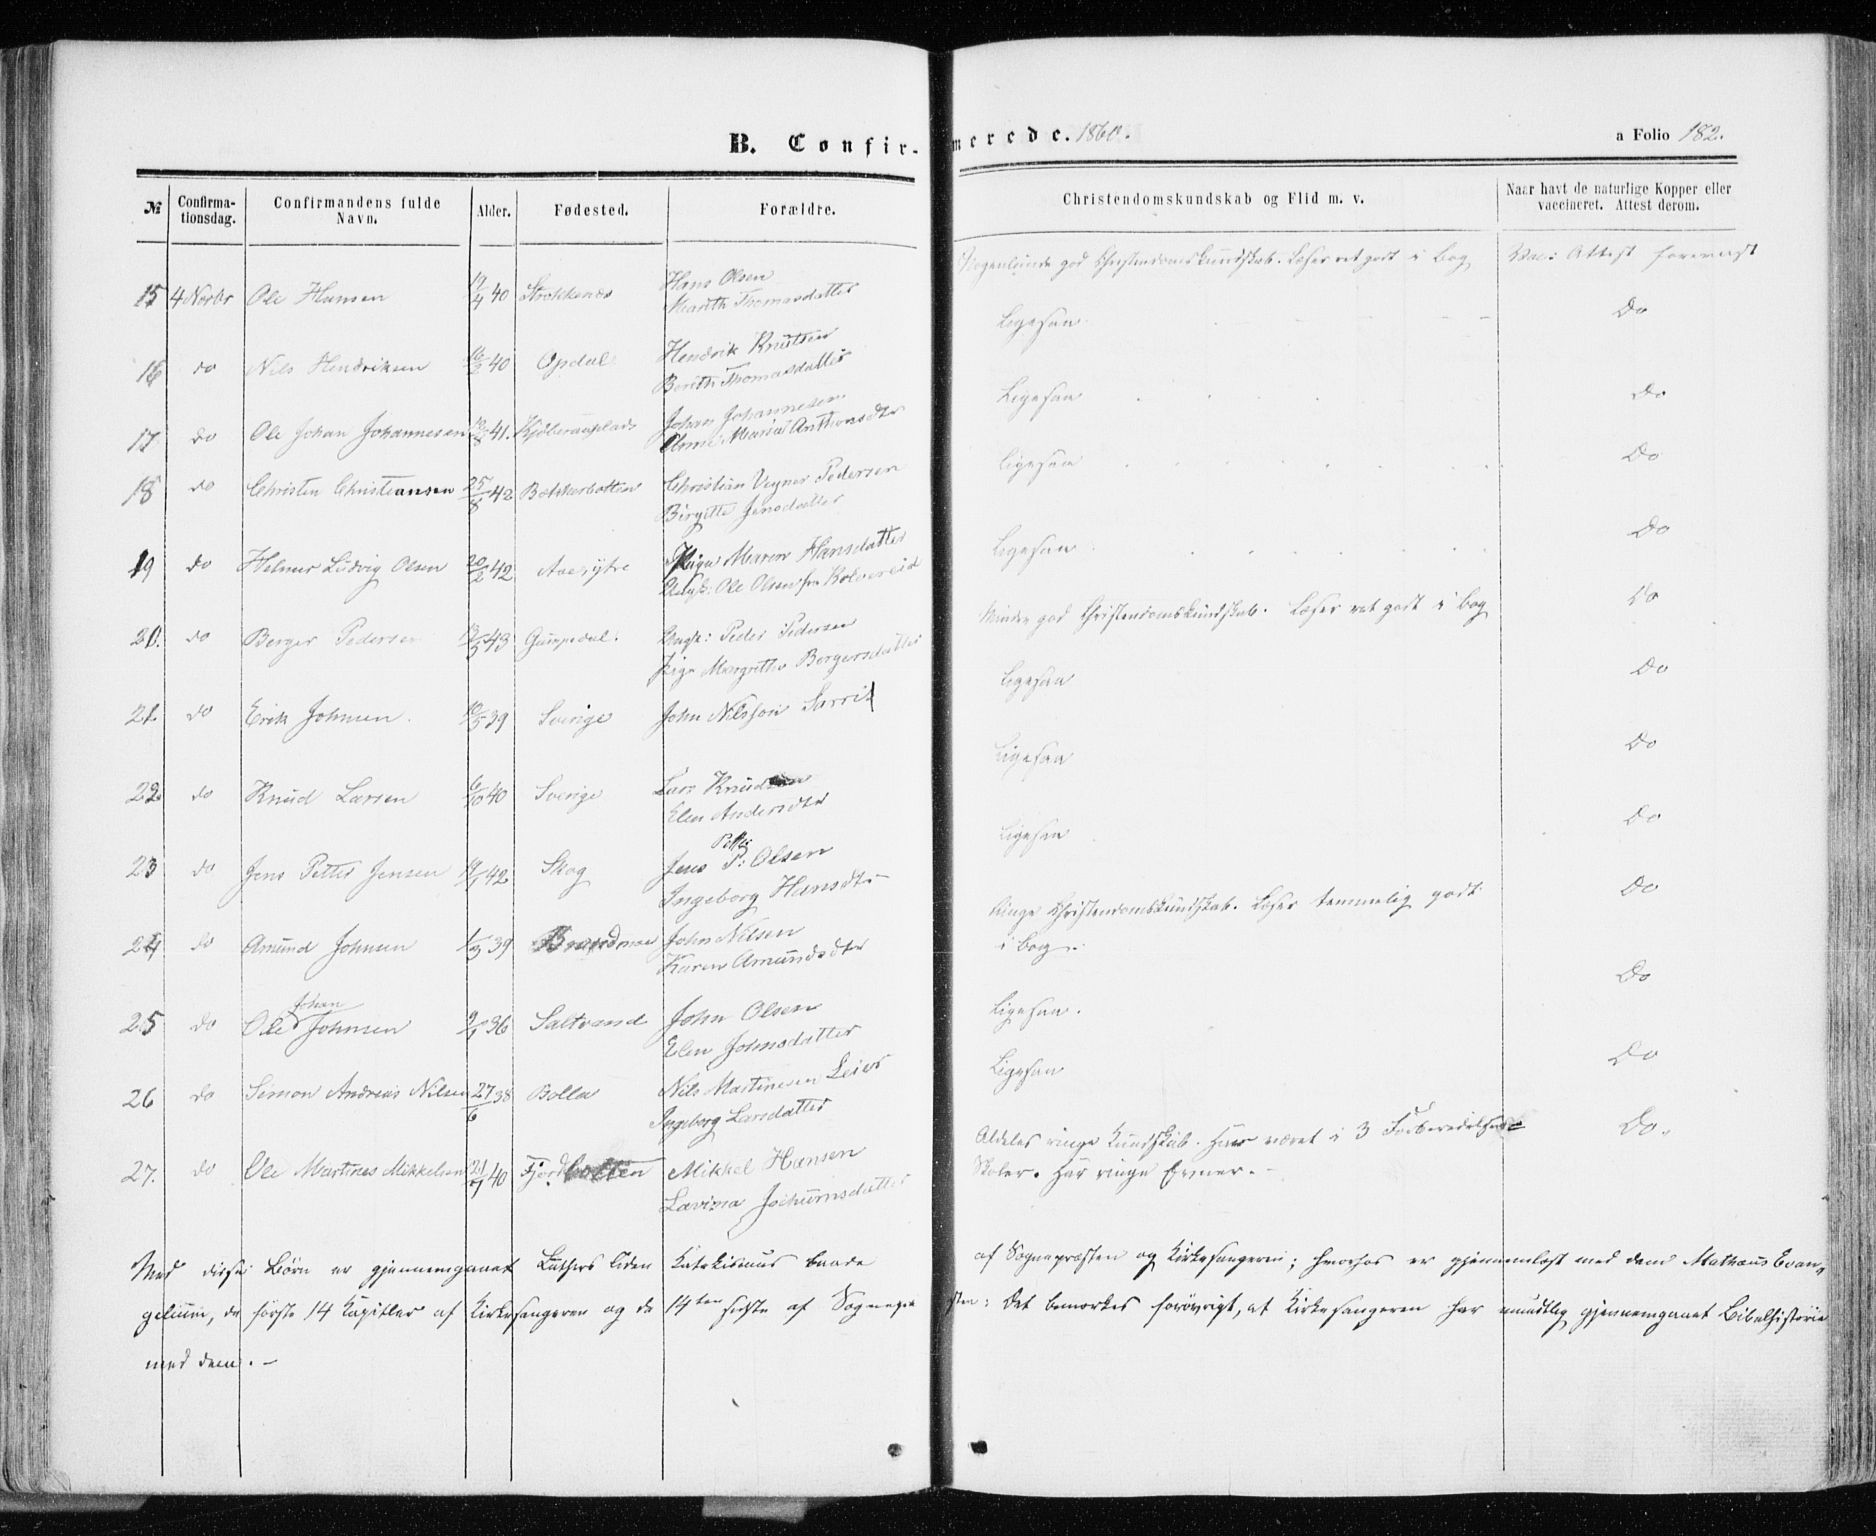 B. Confirmerede. 1860.
a Folio 182.
№ Confirmationsdag. Confirmandens fulde Navn. Alder. Fødested. Forældre. Christendomskundskab og Flid m. v. Naar havt de naturlige Kopper eller vaccineret. Attest derom.
15 4 Novbr Ole Hansen 19/4 40 Strokkenæs Hans Olsen
Marith Thomasdatter
Nogenlunde god Christendomskundskab. Læser ret godt i Bog Vac: Attest foreviist
16 do Nils Hendriksen 40 Opdal Hendrik Knutsen
Berith Thomasdatter
Ligesaa Do
17 do Ole Johan Johannesen 41. Johan Johannesen
Maria Anthonsdtr
Ligesaa Do
18 do Christen Christiansen 25/8 42 Bækkerbotten Christian Vegner Pedersen
Birgitte Jensdatter
Ligesaa Do
19 do Helmer Ludvig Olsen 20/2 42 Pige Maren Hansdatter
Ole Olsen fra Kolvereid
Ligesaa Do
20. do Berger Pedersen 43 Ungk: Peder Pedersen
Pige Margrethe Bergersdatter
Mindre god Christendomskundskab. Læser ret godt i Bog Do
21. do Erik Johnsen. 39 Sverige John Nilsson Sarri
Ligesaa Do
22. do Knud Larsen 6/10 40 Sverige Lars Knudsen
Elen Andersdtr
Ligesaa Do
23 do Jens Petter Jensen 19/1 42 Skog Jens P: Olsen
Petter
Ingeborg Hansdtr
Ligesaa Do
24 do Amund Johnsen 1/3 39 John Nilsen
Karen Amundsdtr
Ringe Christendomskundskab. Læser temmelig godt
i Bog. Do
25 do Ole Johan Johnsen 9/1 36 Saltvand John Olsen
Elen Johnsdatter
Ligesaa. Do
26 do Simon Andreas Nilsen 27/6 38 Bolla Nils Martinesen Leier
Ingeborg Larsdatter
Ligesaa Do
27. do Ole Martines Mikkelsen 21/1 40 Fjordbotten Mikkel Hansen
Lavina Jochumsdatter
Aldeles ringe Kundskab. Har været i 3 Forberedelses-
Skoler. Har ringe Evner. Do.
Med disse Børn er gjennemgaaet Luthers liden Katekismus baade af Sognepræsten og Kirkesangeren; hvorhos er gjennemlæst med dem Mathæus Evan-
gelium, de første 14 Kapitler af Kirkesangeren og de 14 sidste af Sognepræsten: Det bemærkes forøvrigt, at Kirkesangeren har mundtlig gjennemgaaet Bibelhistorie
med dem.